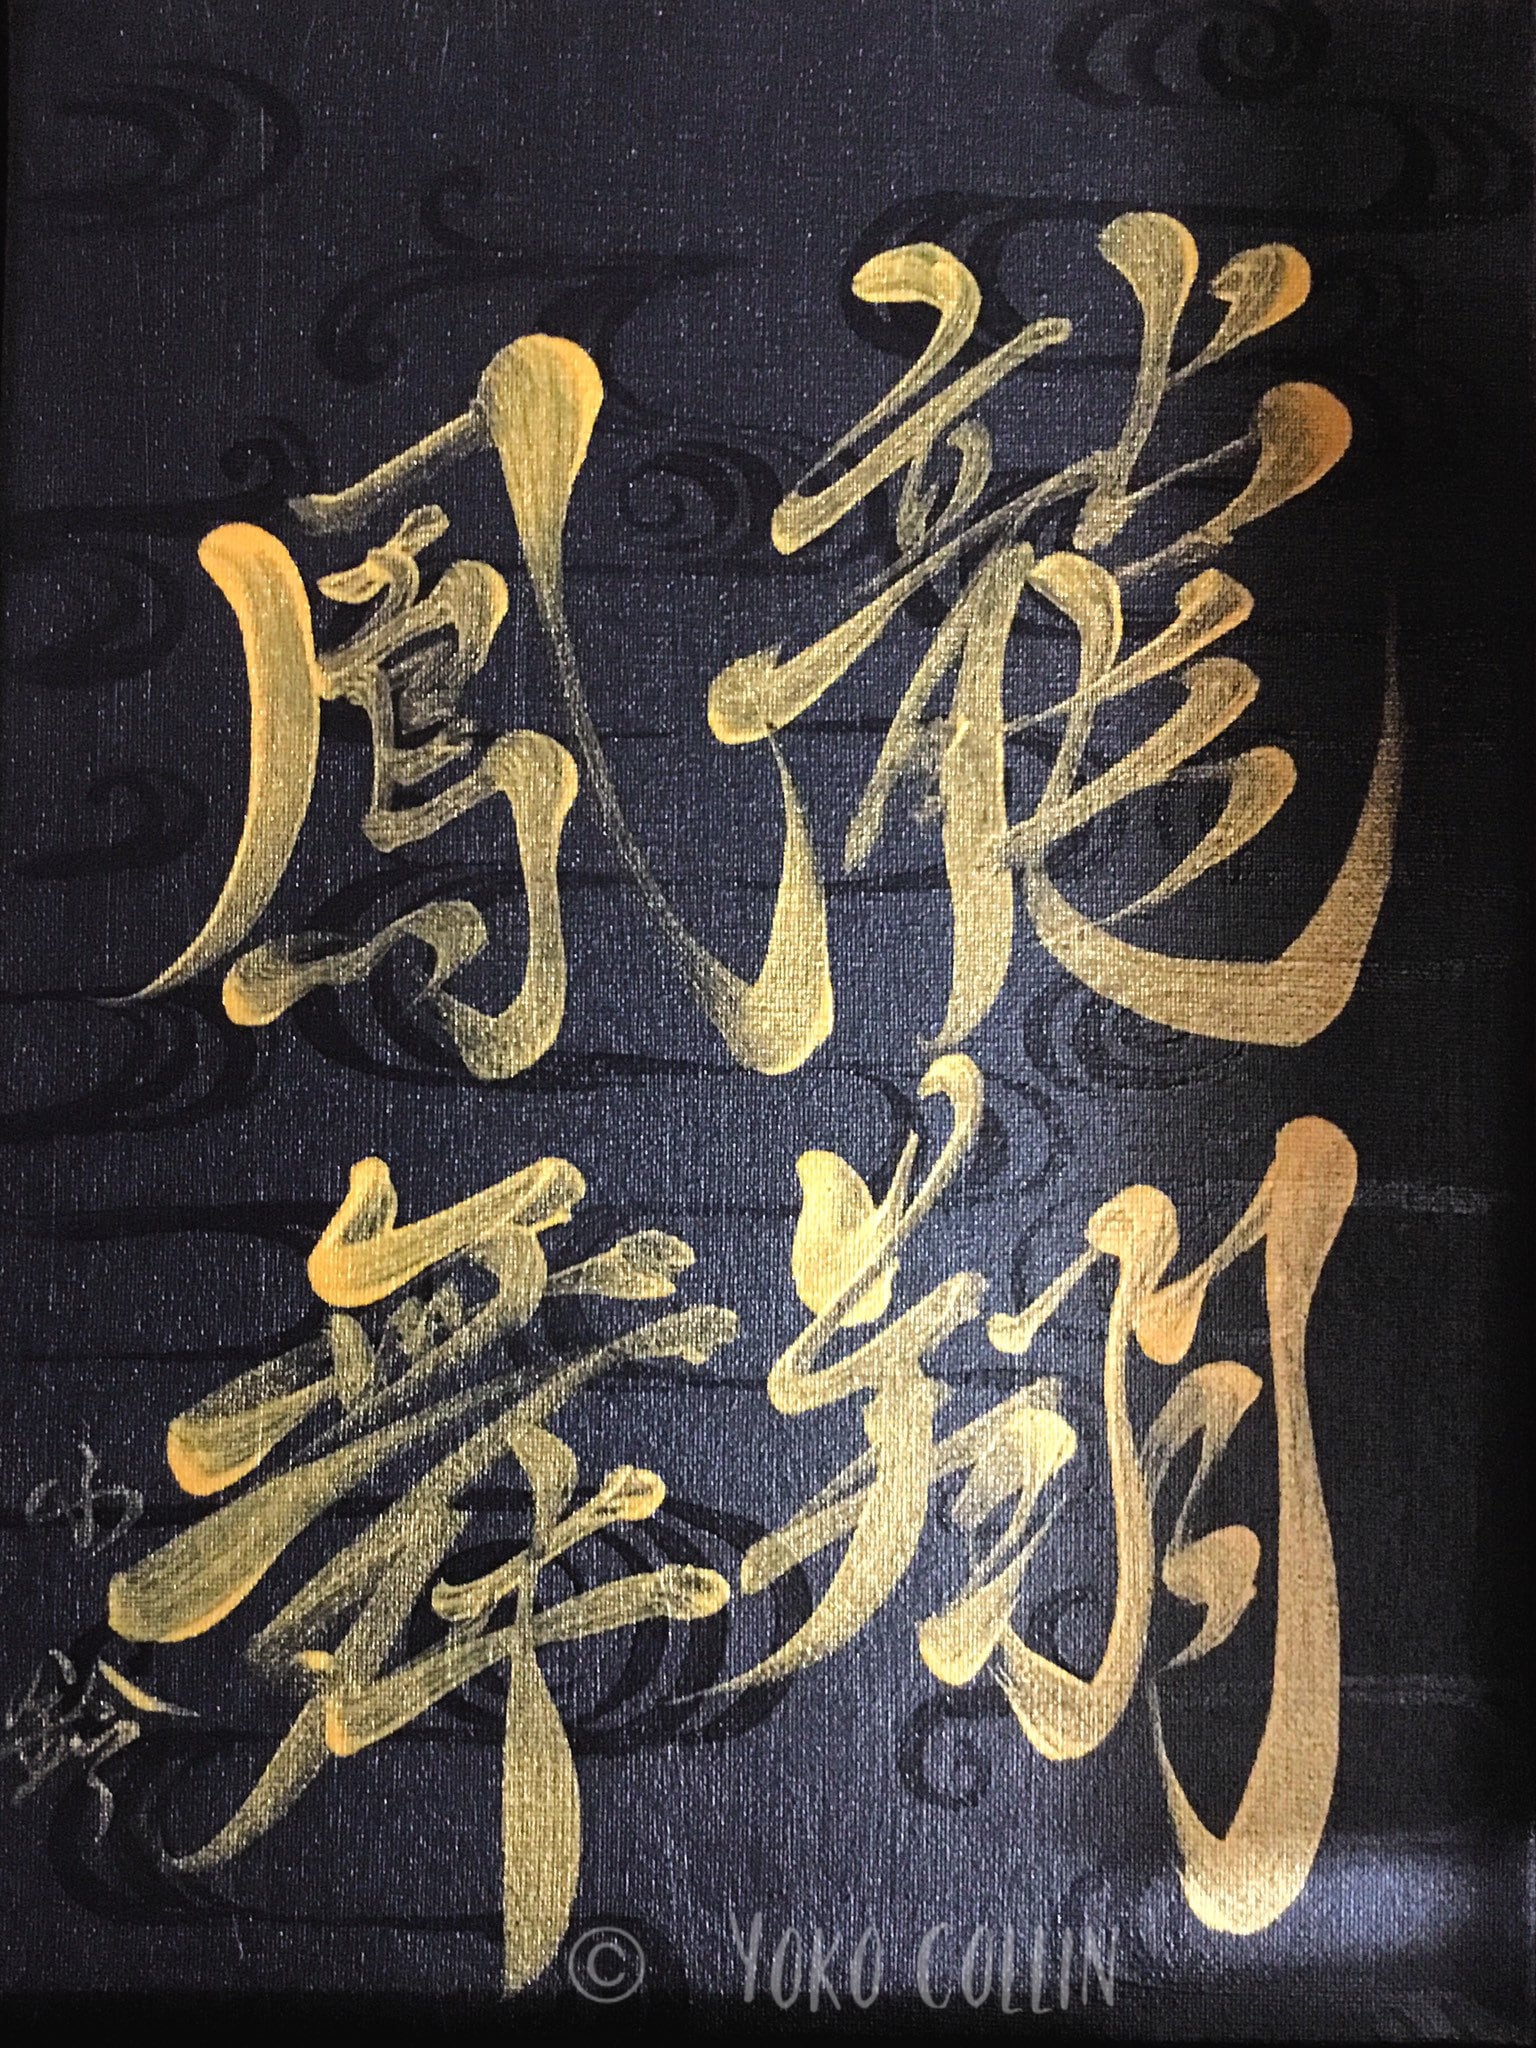 龍翔
鳳舞
鈴
© YOKO COLLIN